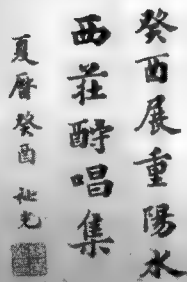 癸酉展重陽水
西莊酧唱集
夏曆癸酉 祉先